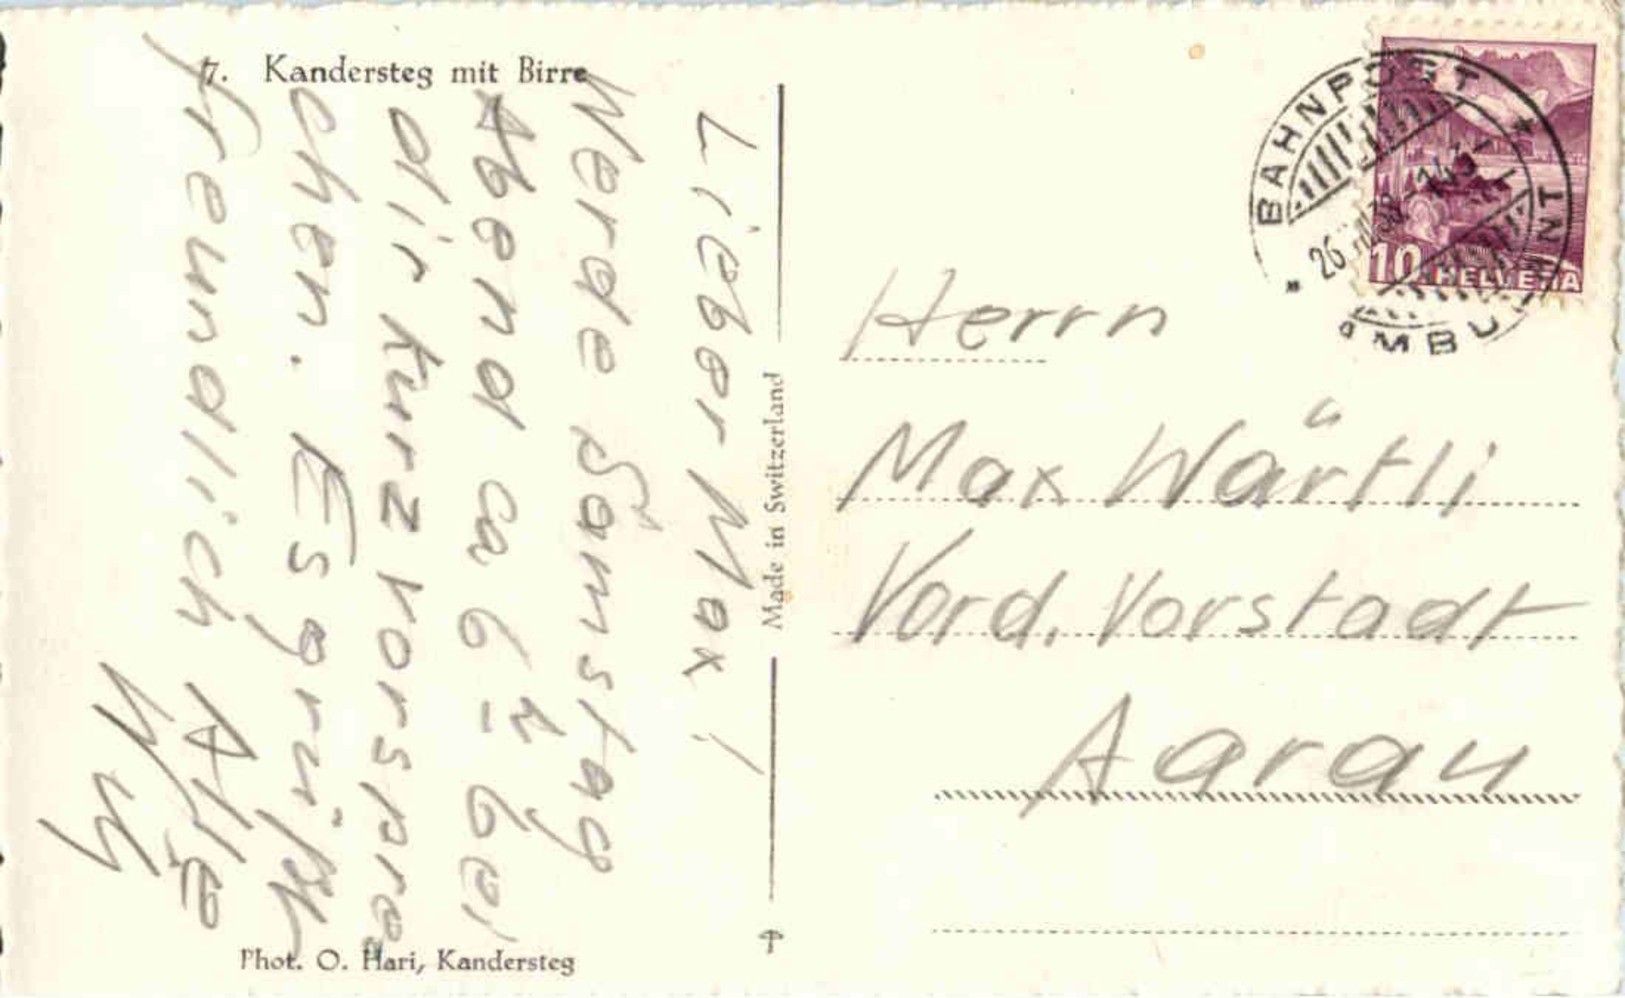 7. Kandersteg mit Birre
Lieber Max!
Werde Samstag
Abend ca 6½ bei
dir kurz vorspre
chen. Es grüßt
freundlich
Made in Switzerland
Phot. O. Hari, Kandersteg
BAHNPOST
26
10 HELVETIA
AMBULANT
Herrn
Max Wärtli
Vord. Vorstadt
Aarau